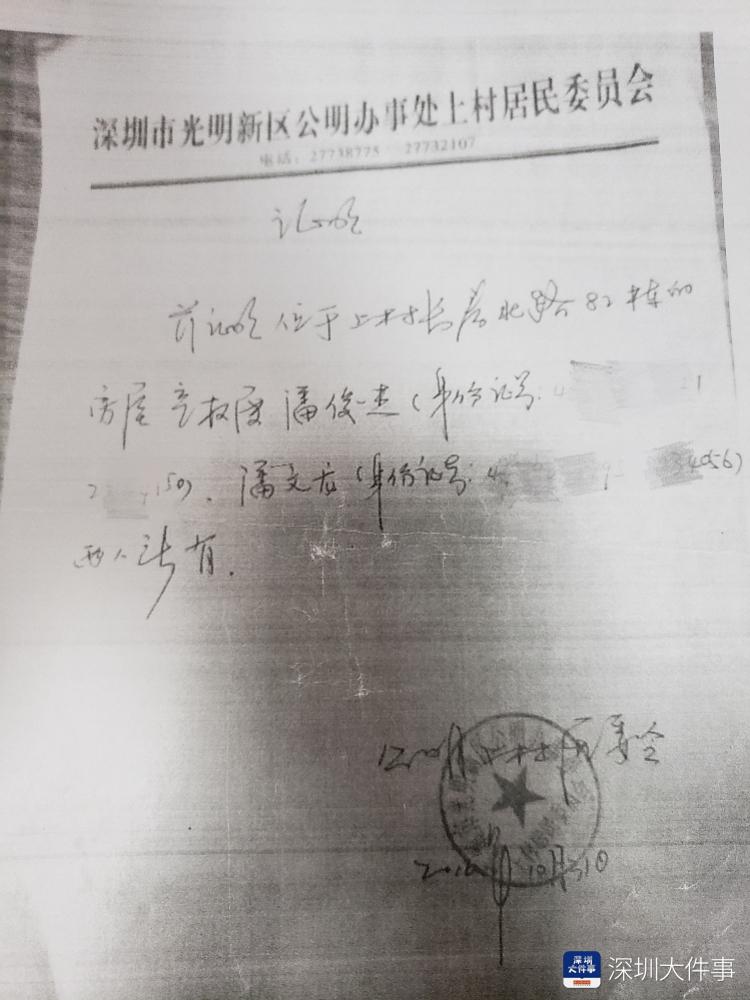 深圳市光明新区公明办事处上村居民委员会
电话：27738775 27732107
证明
兹证明位于上村长春北路82栋的
房屋产权属潘俊杰（身份证号：4 21
2 150）、潘文龙（身份证号：4 9 4056）
两人所有.
公明上村居委会
10月31日
深圳大件事
深圳大件事